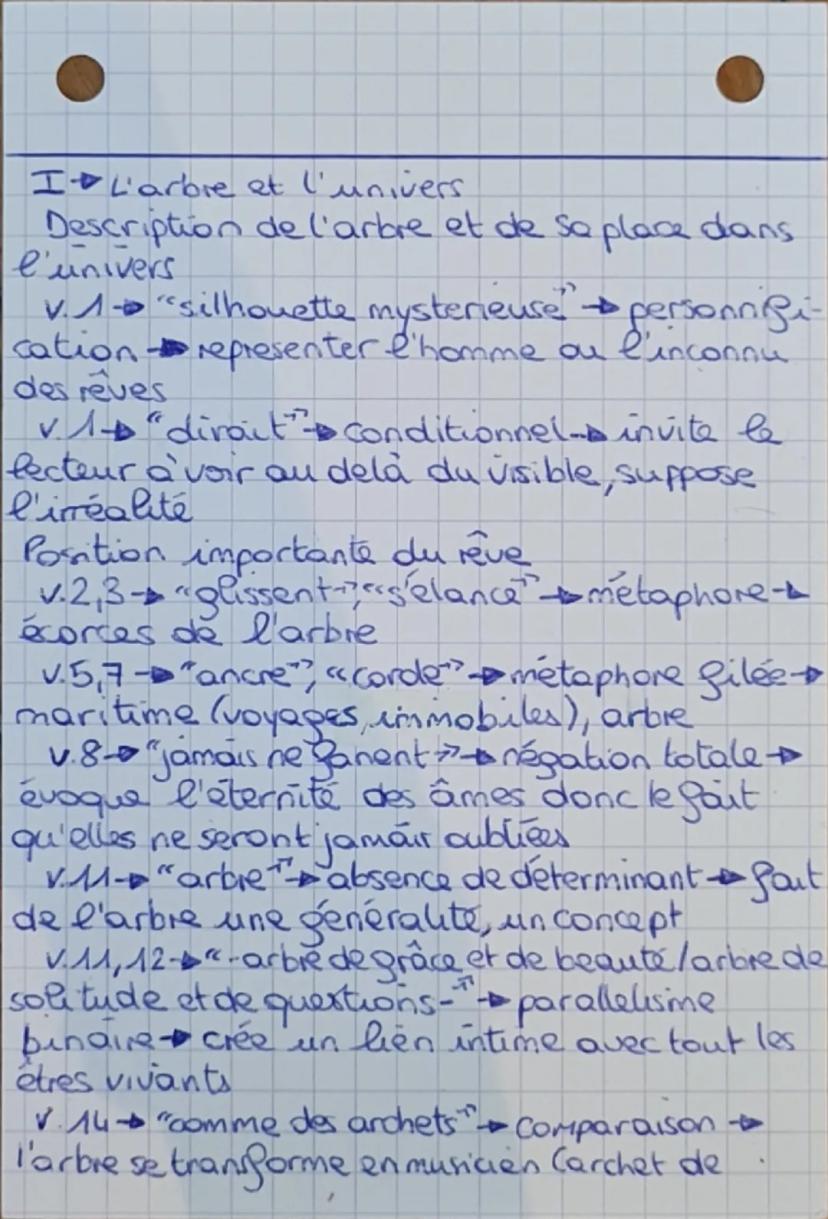 I → L'arbre et l'univers
Description de l'arbre et de sa place dans
l'univers
v.1 → "silhouette mysterieuse" → personnifi-
cation → representer l'homme ou l'inconnu
des rêves
v.1 → "dirait" → conditionnel → invite le
lecteur à voir au delà du visible, suppose
l'irréalité
Position importante du rêve
v.2,3 → "glissent", "s'élance" → métaphore →
écorces de l'arbre
v.5,7 → "ancre", "corde" → métaphore filée →
maritime (voyages immobiles), arbre
v.8 → "jamais ne fanent" → négation totale →
évoque l'éternité des âmes donc le fait
qu'elles ne seront jamais oubliées
v.11 → "arbre" → absence de déterminant → fait
de l'arbre une généralité, un concept
v.11,12 → "-arbre de grâce et de beauté/arbre de
solitude et de questions-" → parallelisme
binaire → crée un lien intime avec tout les
êtres vivants
v.14 → "comme des archets" → comparaison →
l'arbre se transforme en musicien (archet de